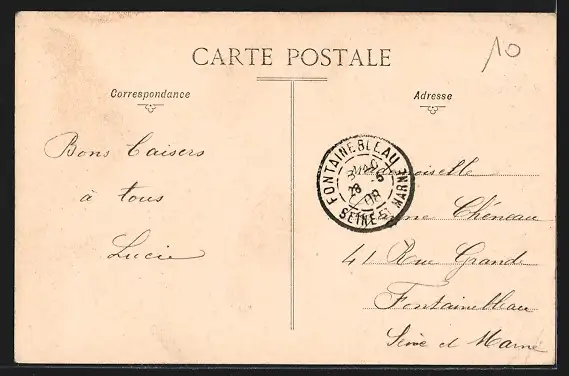 CARTE POSTALE
10
Correspondance
Adresse
Bons baisers
à tous
Lucie
FONTAINEBLEAU
28 -5
08
SEINE ET MARNE
Mademoiselle
Chéneau
41 Rue Grande
Fontainebleau
Seine et Marne